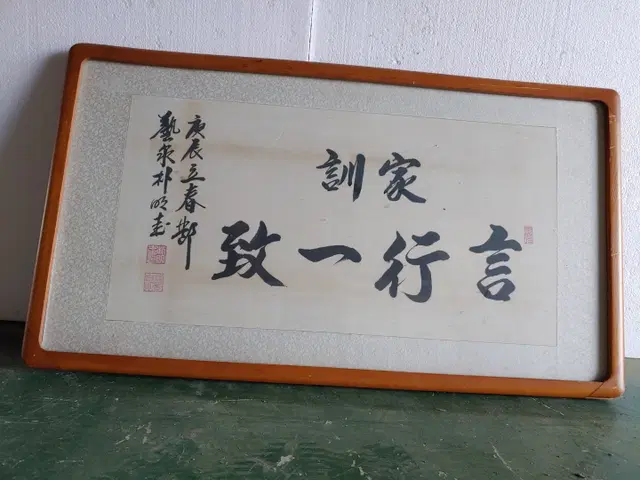 家訓
言行一致
庚辰立春節
藝泉朴明